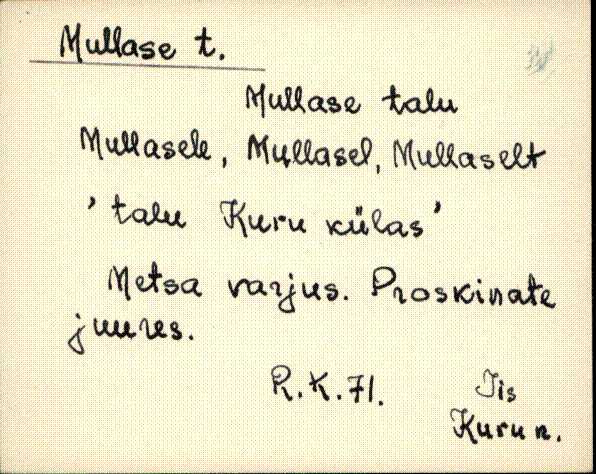 Mullase t.
Mullase talu
Mullasele, Mullasel, Mullaselt
' talu Kuru külas '
Metsa varjus. Proskinate
juures.
R.K.71. Iis
Kuru n.